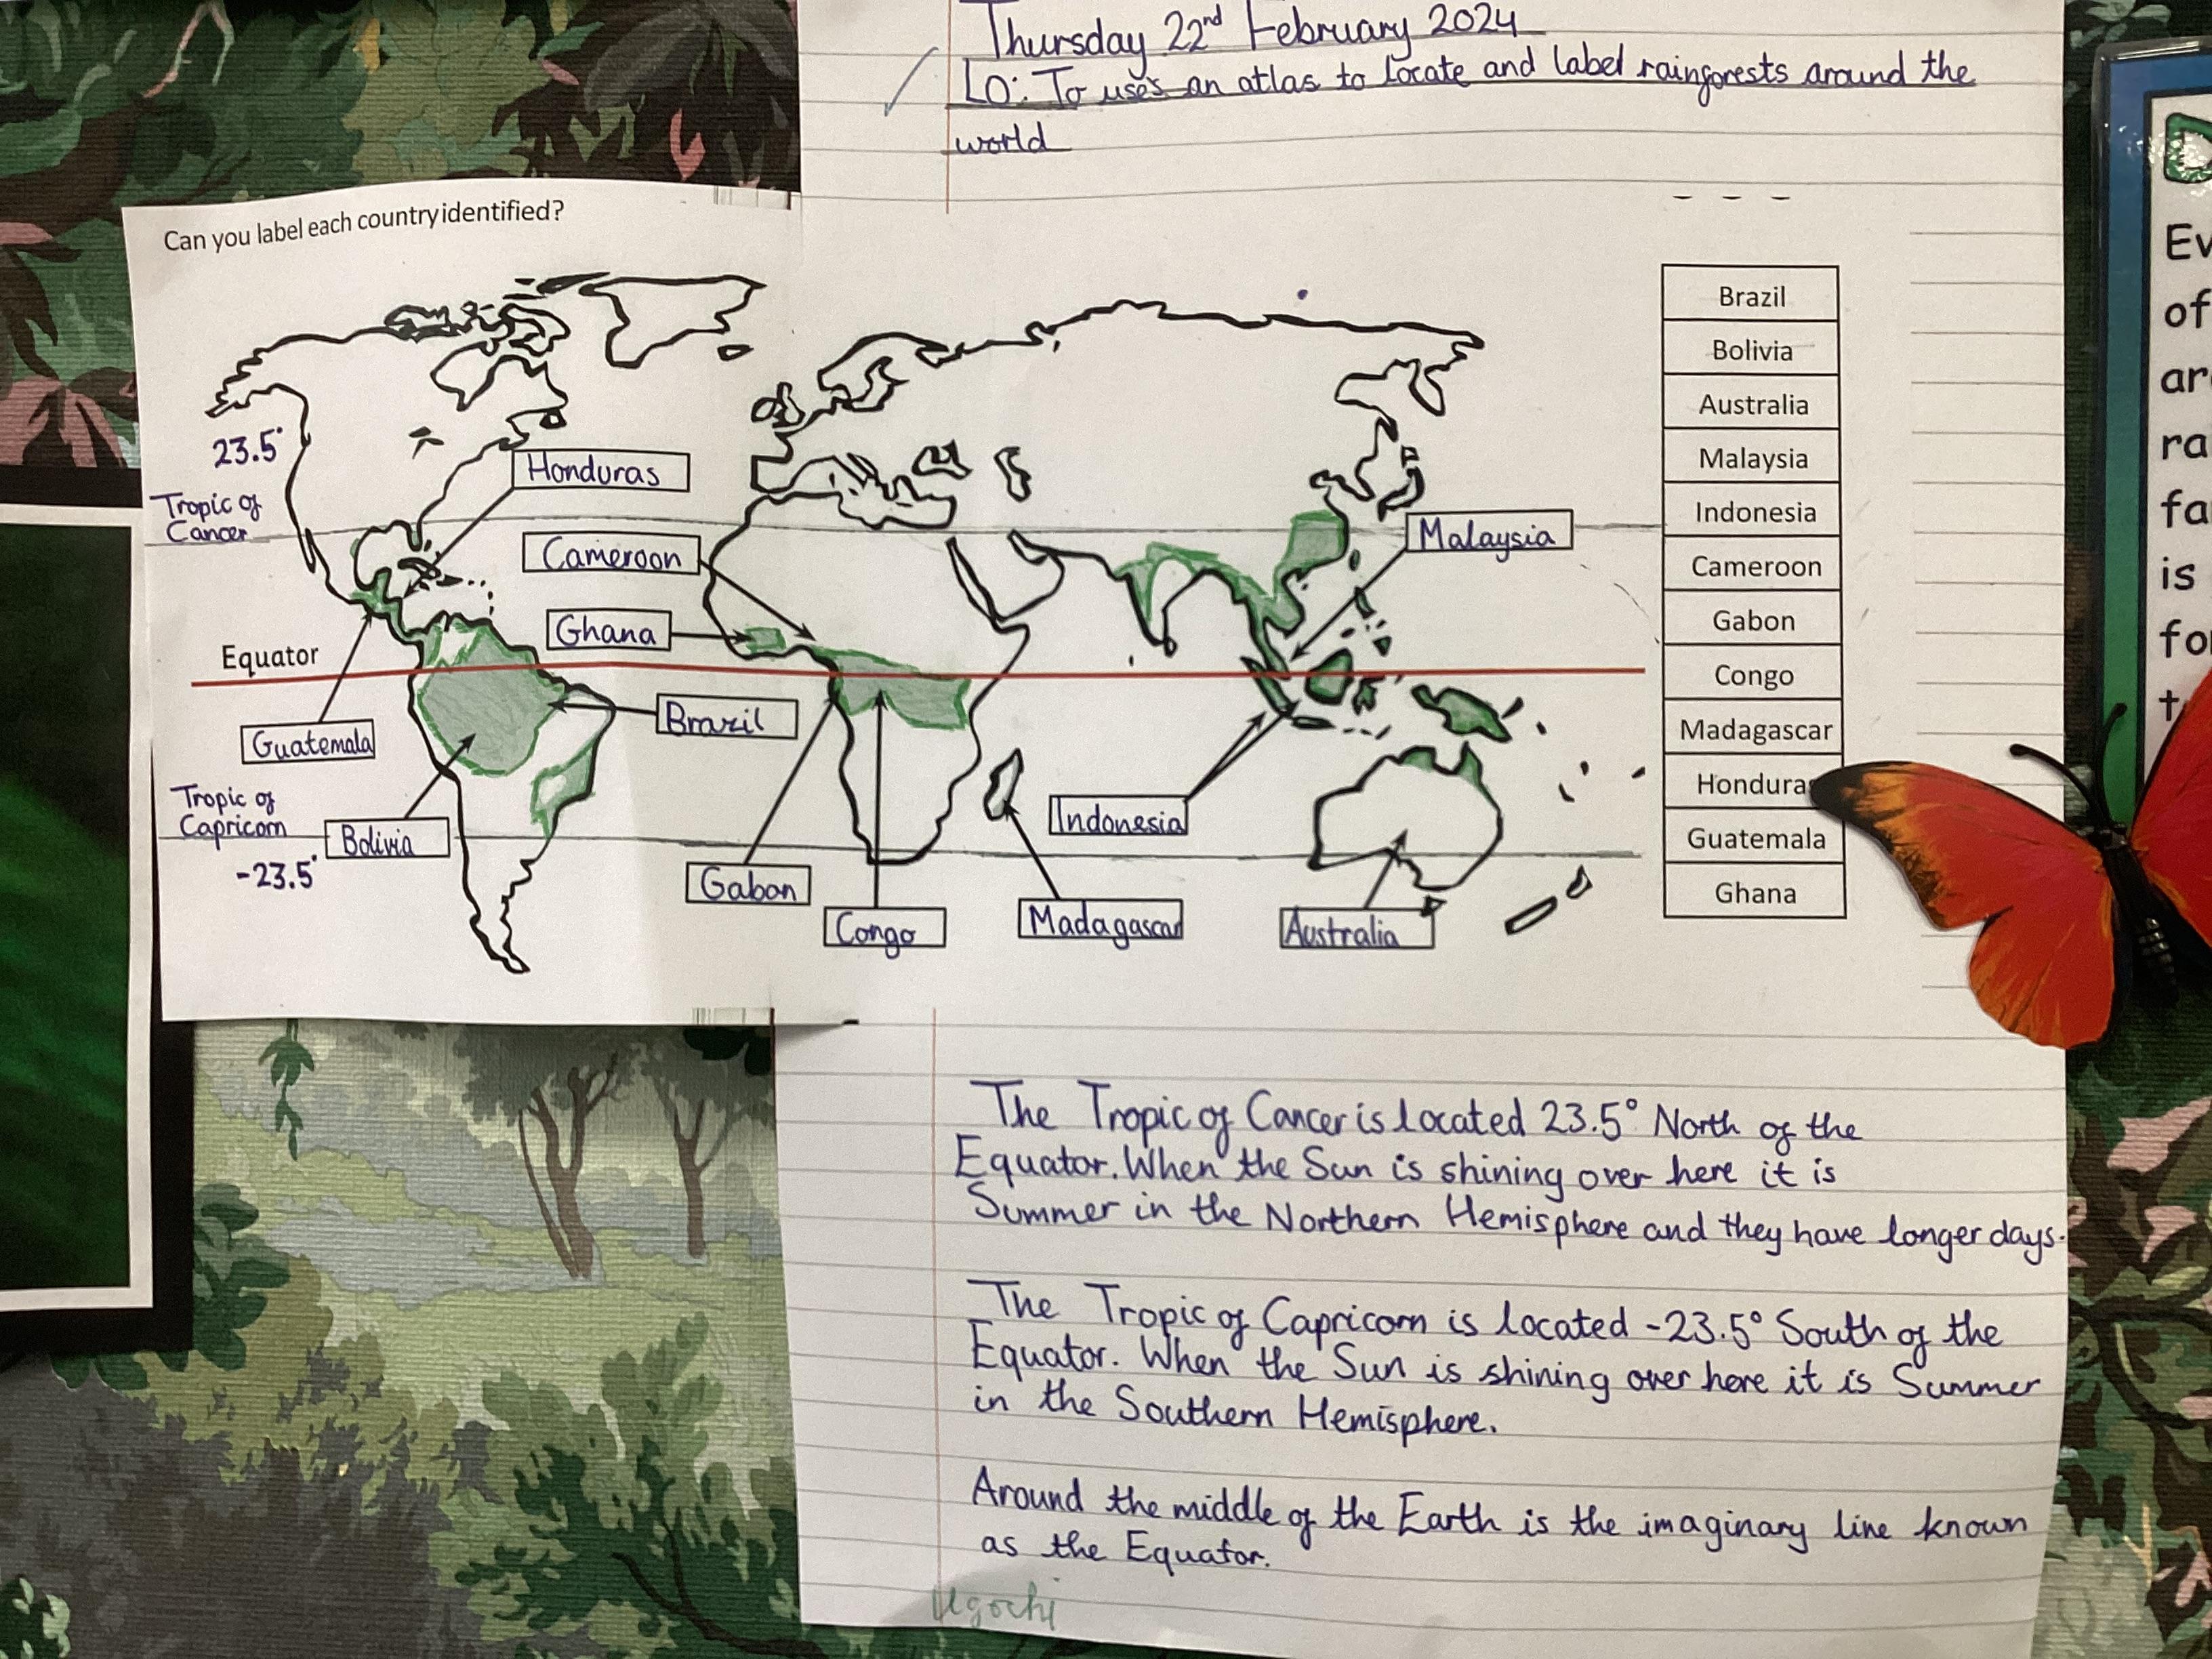 Thursday 22nd February 2024
LO: To uses an atlas to locate and label rainforests around the
world
Can you label each country identified?
23.5°
Tropic of
Cancer
Equator
Tropic of
Capricorn
-23.5°
Honduras
Cameroon
Ghana
Malaysia
Guatemala
Brazil
Bolivia
Indonesia
Gabon
Congo
Madagascar
Australia
Brazil
Bolivia
Australia
Malaysia
Indonesia
Cameroon
Gabon
Congo
Madagascar
Honduras
Guatemala
Ghana
The Tropic of Cancer is located 23.5° North of the
Equator. When the Sun is shining over here it is
Summer in the Northern Hemisphere and they have longer days.
The Tropic of Capricorn is located -23.5° South of the
Equator. When the Sun is shining over here it is Summer
in the Southern Hemisphere.
Around the middle of the Earth is the imaginary line known
as the Equator.
Ugochi
D
Ev
of
ar
ra
fa
is
fo
t